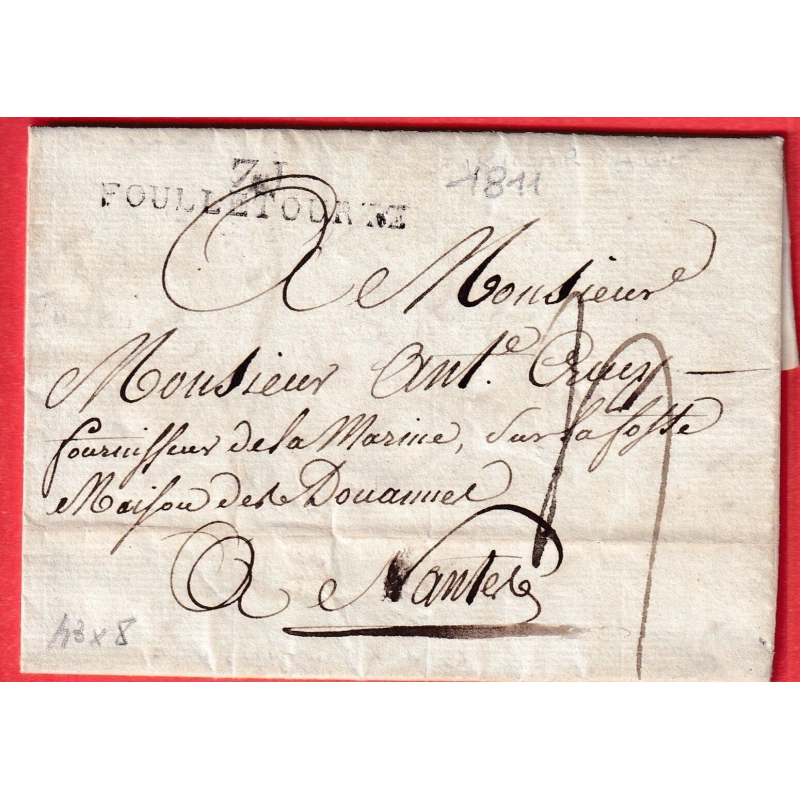 71
FOULLETOURTE
1811
A Monsieur
Monsieur Ant.e Crucy
fournisseur de la Marine, Sur la fosse
Maison des Douannes
A Nantes
43 x 8